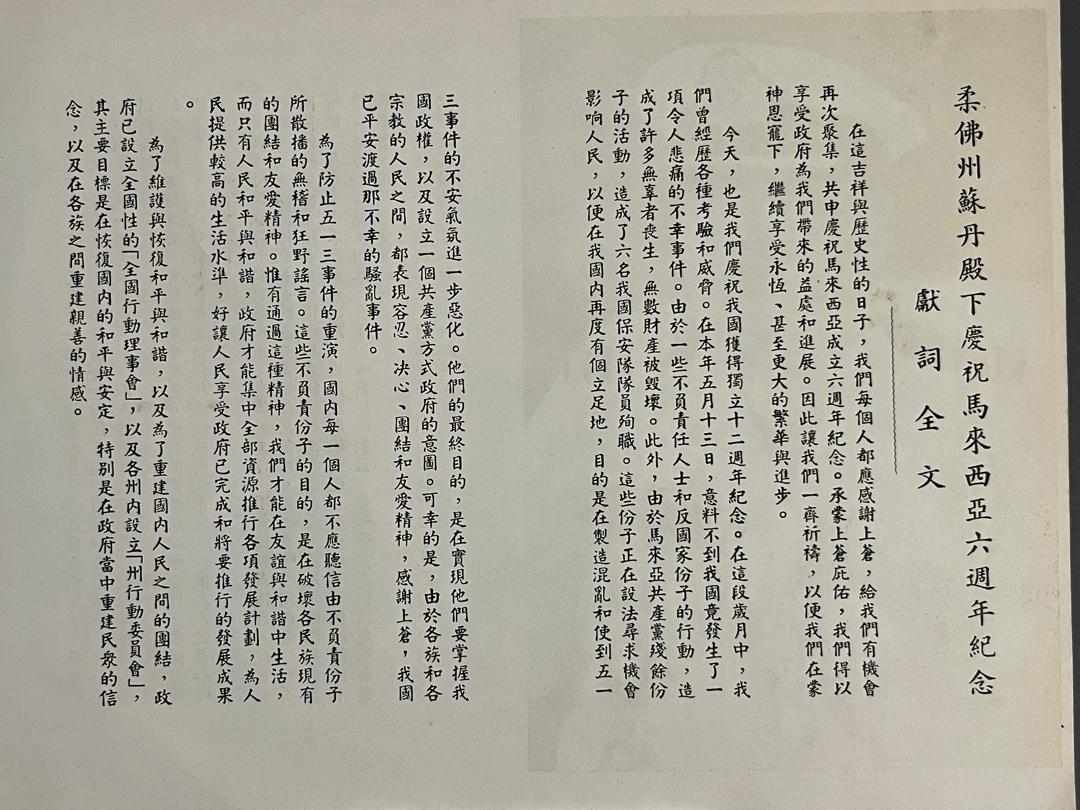 柔佛州蘇丹殿下慶祝馬來西亞六週年紀念
獻詞全文
在這吉祥與歷史性的日子，我們每個人都應感謝上蒼，給我們有機會
再次聚集，共申慶祝馬來西亞成立六週年紀念。承蒙上蒼庇佑，我們得以
享受政府為我們帶來的益處和進展。因此讓我們一齊祈禱，以便我們在蒙
神恩寵下，繼續享受永恆、甚至更大的繁華與進步。
今天，也是我們慶祝我國獲得獨立十二週年紀念。在這段歲月中，我
們曾經歷各種考驗和威脅。在本年五月十三日，意料不到我國竟發生了一
項令人悲痛的不幸事件。由於一些不負責任人士和反國家份子的行動，造
成了許多無辜者喪生，無數財產被毀壞。此外，由於馬來亞共產黨殘餘份
子的活動，造成了六名我國保安隊隊員殉職。這些份子正在設法尋求機會
影响人民，以便在我國內再度有個立足地，目的是在製造混亂和使到五一
三事件的不安氣氛進一步惡化。他們的最終目的，是在實現他們要掌握我
國政權，以及設立一個共產黨方式政府的意圖。可幸的是，由於各族和各
宗教的人民之間，都表現容忍、决心、團結和友愛精神，感謝上蒼，我國
已平安渡過那不幸的騷亂事件。
為了防止五一三事件的重演，國内每一個人都不應聽信由不負責份子
所散播的無稽和狂野謠言。這些不負責份子的目的，是在破壞各民族現有
的團結和友愛精神。惟有通過這種精神，我們才能在友誼與和諧中生活，
而只有人民和平與和諧，政府才能集中全部資源推行各項發展計劃，為人
民提供較高的生活水準，好讓人民享受政府已完成和將要推行的發展成果
。
為了維護與恢復和平與和諧，以及為了重建國内人民之間的團結，政
府已設立全國性的「全國行動理事會」，以及各州内設立「州行動委員會」，
其主要目標是在恢復國内的和平與安定，特別是在政府當中重建民眾的信
念，以及在各族之間重建親善的情感。